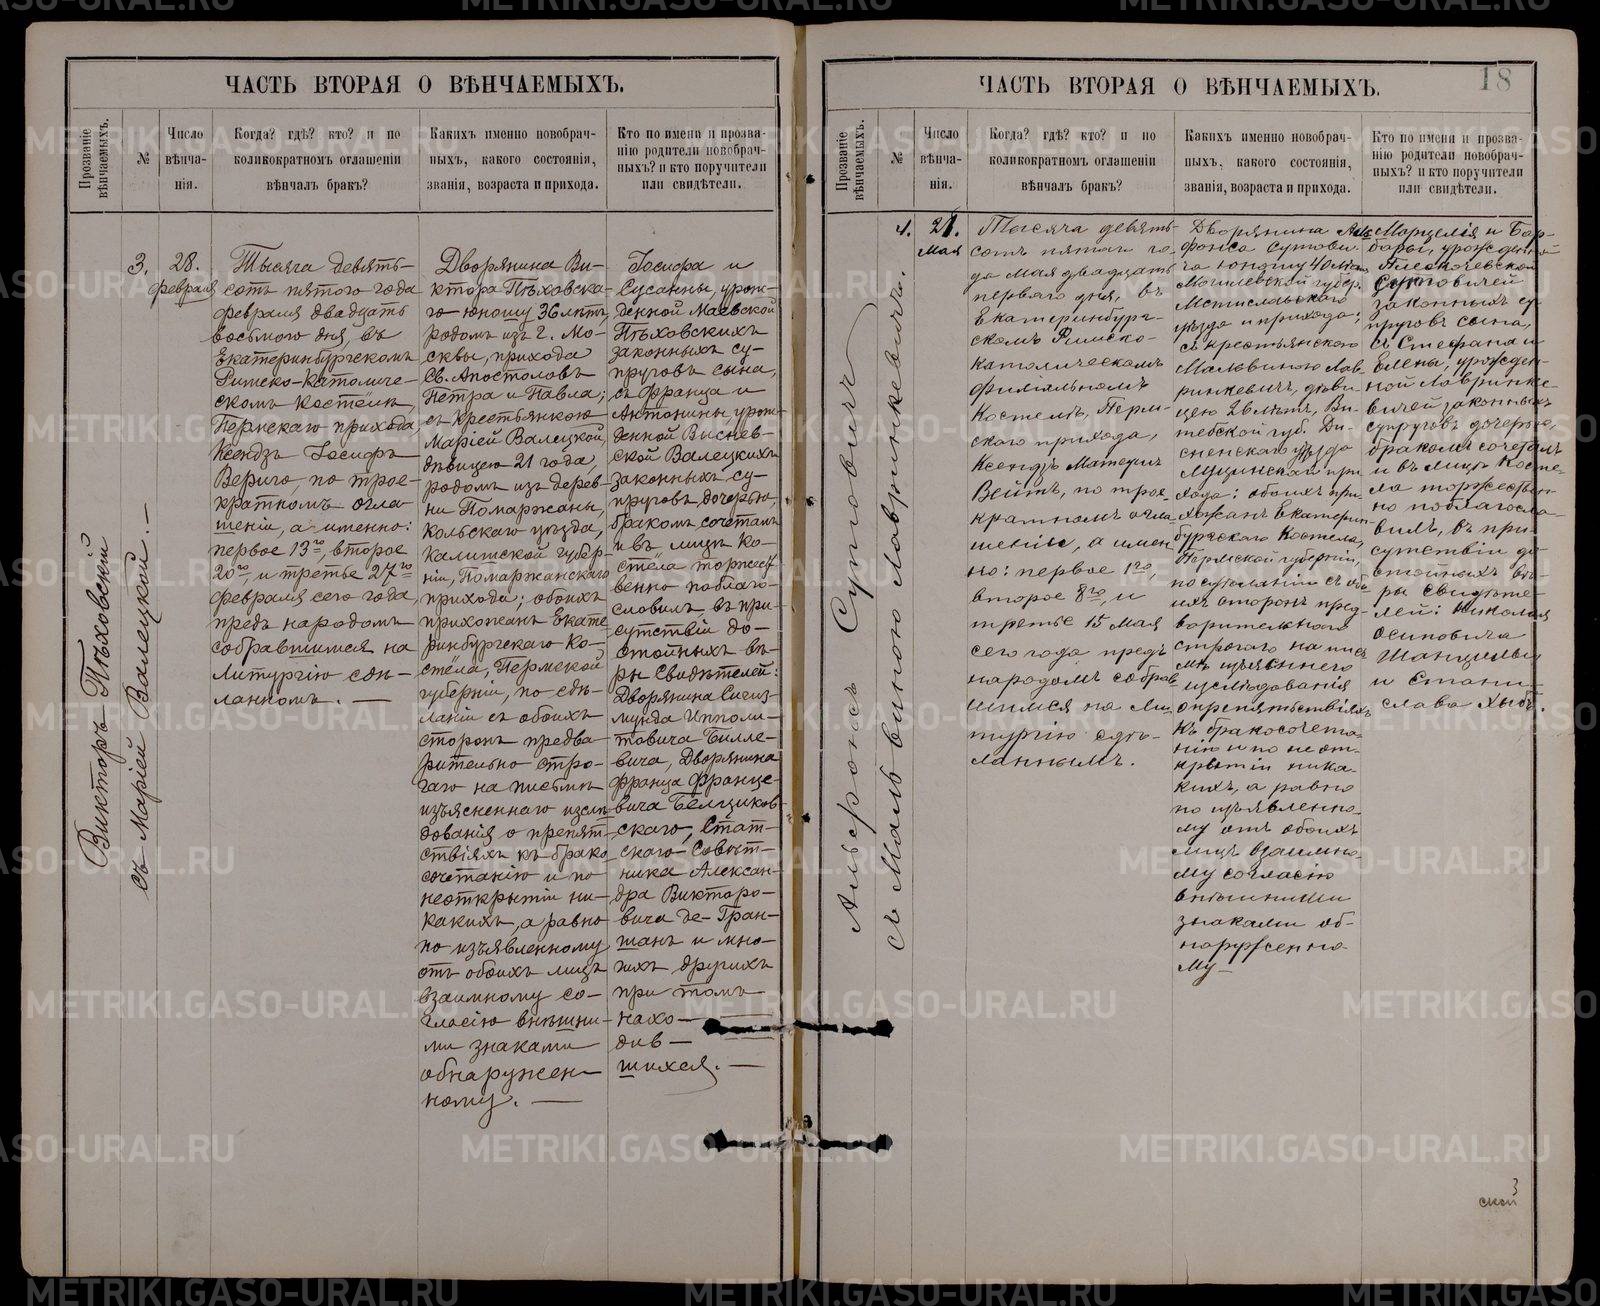 ЧАСТЬ ВТОРАЯ О ВѢНЧАЕМЫХЪ.
Прозваніе вѣнчаемыхъ.
№
Число вѣнча-
нія.
Когда? гдѣ? кто? и по
коликократномъ оглашеніи
вѣнчалъ бракъ?
Какихъ именно новобрач-
ныхъ, какого состоянія,
званія, возраста и прихода.
Кто по имени и прозва-
нію родители новобрач-
ныхъ? и кто поручители
или свидѣтели.
Викторъ Пѣховскій
съ Маріей Валецкой. —
3.
28.
февраля
Тысяча девять-
сотъ пятого года
февраля двадцать
восьмого дня, въ
Екатеринбургскомъ
Римско-Католиче-
скомъ костёлѣ,
Пермскаго прихода,
Ксендзъ Іосифъ
Верига, по трое-
кратномъ огла-
шеніи, а именно:
первое 13го, второе
20го, и третье 27го
февраля сего года,
предъ народомъ
собравшимся на
литургію сдѣ-
ланномъ. —
Дворянина Ви-
ктора Пѣховска-
го юношу 36 лѣтъ,
родомъ изъ г. Мо-
сквы, прихода
Св. Апостоловъ
Петра и Павла;
съ Крестьянкою
Маріей Валецкой,
дѣвицею 21 года,
родомъ изъ дерев-
ни Помаржаны,
Кольскаго уѣзда,
Калишской губер-
ніи, Помаржанскаго
прихода; обоихъ
прихожанъ Екате-
ринбургскаго Ко-
стёла, Пермской
губерніи, по сдѣ-
ланіи съ обоихъ
сторонъ предва-
рительно стро-
гаго на письмѣ
изъясненнаго изслѣ-
дованія о препят-
ствіяхъ къ брако-
сочетанію и по
неоткрытіи ни-
какихъ, а равно
по изъявленному
отъ обоихъ лицъ
взаимному со-
гласію внѣшни-
ми знаками
обнаружен-
ному. —
Іосифа и
Сусанны, урож-
денной Маевской
Пѣховскихъ
законныхъ су-
пруговъ сына,
съ Франца и
Антонины, урож-
денной Виснев-
ской Валецкихъ
законныхъ су-
пруговъ, дочерью,
бракомъ сочеталъ
и въ лицѣ Ко-
стёла торжест-
венно поблаго-
словилъ въ при-
сутствіи до-
стойныхъ вѣ-
ры Свидѣтелей:
Дворянина Сигиз-
мунда Ипполи-
товича Билле-
вича, Дворянина
Франца Франце-
вича Белциков-
скаго, Стат-
скаго Совѣт-
ника Алексан-
дра Викторо-
вича де-Гран-
шанъ и мно-
гихъ другихъ
при томъ
нахо-
див-
шихся. —
18
ЧАСТЬ ВТОРАЯ О ВѢНЧАЕМЫХЪ.
Прозваніе вѣнчаемыхъ.
№
Число вѣнча-
нія.
Когда? гдѣ? кто? и по
коликократномъ оглашеніи
вѣнчалъ бракъ?
Какихъ именно новобрач-
ныхъ, какого состоянія,
званія, возраста и прихода.
Кто по имени и прозва-
нію родители новобрач-
ныхъ? и кто поручители
или свидѣтели.
Альфонсъ Сутовичъ
съ Мальвиною Лавринкевичъ.
4.
21.
Мая
Тысяча девять-
сотъ пятаго го-
да мая двадцать
перваго дня, въ
Екатеринбург-
скомъ Римско-
католическомъ
филіальномъ
Костелѣ, Перм-
скаго прихода,
Ксендзъ Матеушъ
Вейтъ, по трое-
кратномъ огла-
шеніи, а имен-
но: первое 1го,
второе 8го, и
третье 15 Мая
сего года предъ
народомъ собрав-
шимся на Ли-
тургію сдѣ-
ланнымъ.
Дворянина Аль-
фонса Сутови-
ча юношу 40 лѣтъ
Могилевской губер.
Мстиславскаго
уѣзда и прихода;
съ крестьянскою
Мальвиною Лав-
ринкевичъ, дѣви-
цею 26 лѣтъ, Ви-
тебской губ. Ди-
сненскаго уѣзда
при-
хода; обоихъ при-
хожанъ Екатерин-
бургскаго Костела,
Пермской губерніи,
по сдѣланіи съ обо-
ихъ сторонъ пред-
варительнаго
строгаго на пись-
мѣ изъявленнаго
изслѣдованія
о препятствіяхъ
къ бракосочета-
нію и по неот-
крытіи ника-
кихъ, а равно
по изъявленно-
му отъ обоихъ
лицъ взаимно-
му согласію
внѣшними
знаками об-
наруженно-
му —
Марцелія и Бар-
бары, урожденной
Плескачевской
Сутовичей
законныхъ су-
пруговъ сына,
съ Стефана и
Елены, урожден-
ной Лавринке-
вичей законныхъ
супруговъ дочерью,
бракомъ сочеталъ
и въ лицѣ Косте-
ла торжествен-
но поблагосло-
вилъ, въ при-
сутствіи до-
стойныхъ вѣ-
ры свидѣте-
лей: Николая
Осиповича
и Стани-
слава Хыбъ.